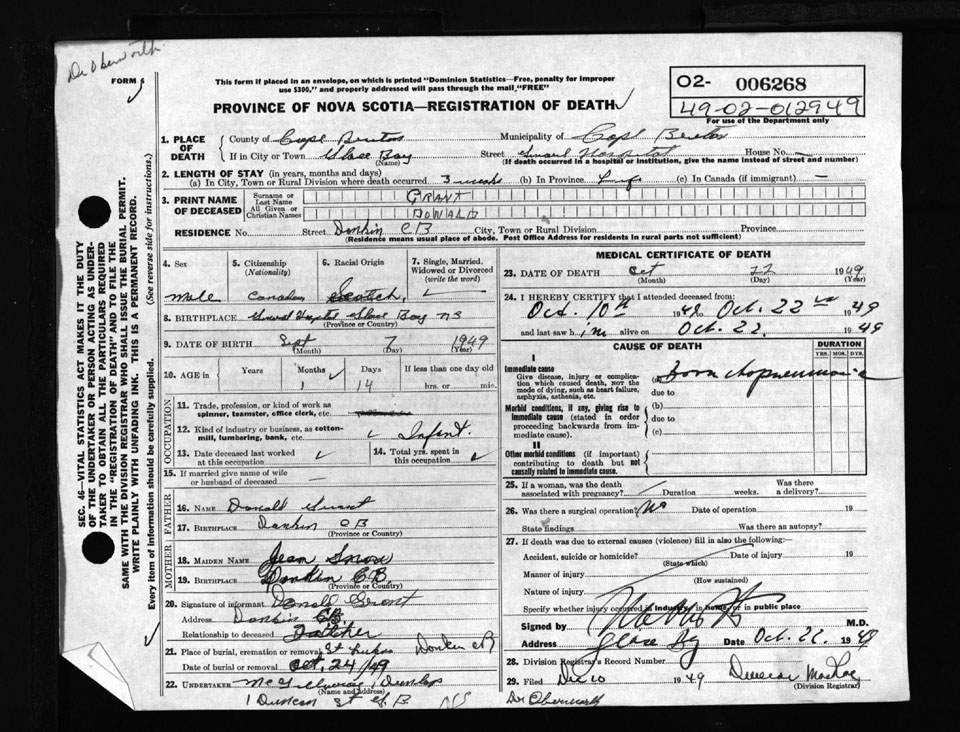 Dr Oberworth
FORM 5
This form if placed in an envelope, on which is printed "Dominion Statistics—Free, penalty for improper
use $300," and properly addressed will pass through the mail "FREE"
O2- 006268
49-02-012949
For use of the Department only
PROVINCE OF NOVA SCOTIA—REGISTRATION OF DEATH
1. PLACE OF DEATH
County of Cape Breton Municipality of Cape Breton
If in City or Town Glace Bay (Name) Street General Hospital House No. —
(If death occurred in a hospital or institution, give the name instead of street and number)
2. LENGTH OF STAY (in years, months and days)
(a) In City, Town or Rural Division where death occurred 3 weeks (b) In Province (c) In Canada (if immigrant) —
3. PRINT NAME OF DECEASED
Surname or Last Name GRANT
All Given or Christian Names DONALD
RESIDENCE No. Street Donkin CB City, Town or Rural Division Province
(Residence means usual place of abode. Post Office Address for residents in rural parts not sufficient)
4. Sex Male
5. Citizenship (Nationality) Canadian
6. Racial Origin Scotch
7. Single, Married, Widowed or Divorced (write the word)
8. BIRTHPLACE General Hospital Glace Bay NS
(Province or Country)
9. DATE OF BIRTH Sept 7 1949
(Month) (Day) (Year)
10. AGE in Years Months 1 Days 14 If less than one day old hrs. or min.
OCCUPATION
11. Trade, profession, or kind of work as spinner, teamster, office clerk, etc.
12. Kind of industry or business, as cotton-mill, lumbering, bank, etc. Infant.
13. Date deceased last worked at this occupation
14. Total yrs. spent in this occupation
15. If married give name of wife or husband of deceased
FATHER
16. Name Donald Grant
17. Birthplace Donkin CB
(Province or Country)
MOTHER
18. MAIDEN NAME Jean
19. BIRTHPLACE Donkin C.B.
(Province or Country)
20. Signature of informant Donald Grant
Address Donkin CB.
Relationship to deceased Father
21. Place of burial, cremation or removal St Lukes Donkin CB
Date of burial or removal Oct, 24/49
22. UNDERTAKER Dunlop
(Name and address)
1 Duncan St G.B. NS
MEDICAL CERTIFICATE OF DEATH
23. DATE OF DEATH Oct 22 1949
(Month) (Day)
24. I HEREBY CERTIFY that I attended deceased from:
Oct. 10th 1949 to Oct. 22nd 1949
and last saw him alive on Oct. 22. 1949
CAUSE OF DEATH
DURATION
YRS. MOS. DYS.
I
Immediate cause
Give disease, injury or complication which caused death, NOT the mode of dying, such as heart failure, asphyxia, asthenia, etc.
(a) Bronchopneumonia
due to
Morbid conditions, if any, giving rise to immediate cause (stated in order proceeding backwards from immediate cause).
(b)
due to
(c)
II
Other morbid conditions (if important) contributing to death but not causally related to immediate cause.
25. If a woman, was the death associated with pregnancy? Duration weeks. Was there a delivery?
26. Was there a surgical operation? No Date of operation 19
State findings Was there an autopsy?
27. If death was due to external causes (violence) fill in also the following:—
Accident, suicide or homicide? (State which) Date of injury 19
Manner of injury
(How sustained)
Nature of injury
Specify whether injury occurred in industry, in home, or in public place
Signed by M.D.
Address Glace Bay Date Oct. 22 1949
28. Division Registrar's Record Number
29. Filed Dec 10 1949
(Division Registrar)
SEC. 46—VITAL STATISTICS ACT MAKES IT THE DUTY
OF THE UNDERTAKER OR PERSON ACTING AS UNDER-
TAKER TO OBTAIN ALL THE PARTICULARS REQUIRED
IN THE "REGISTRATION OF DEATH" AND TO FILE THE
SAME WITH THE DIVISION REGISTRAR WHO SHALL ISSUE THE BURIAL PERMIT.
WRITE PLAINLY WITH UNFADING INK. THIS IS A PERMANENT RECORD.
Every item of information should be carefully supplied. (See reverse side for instructions.)